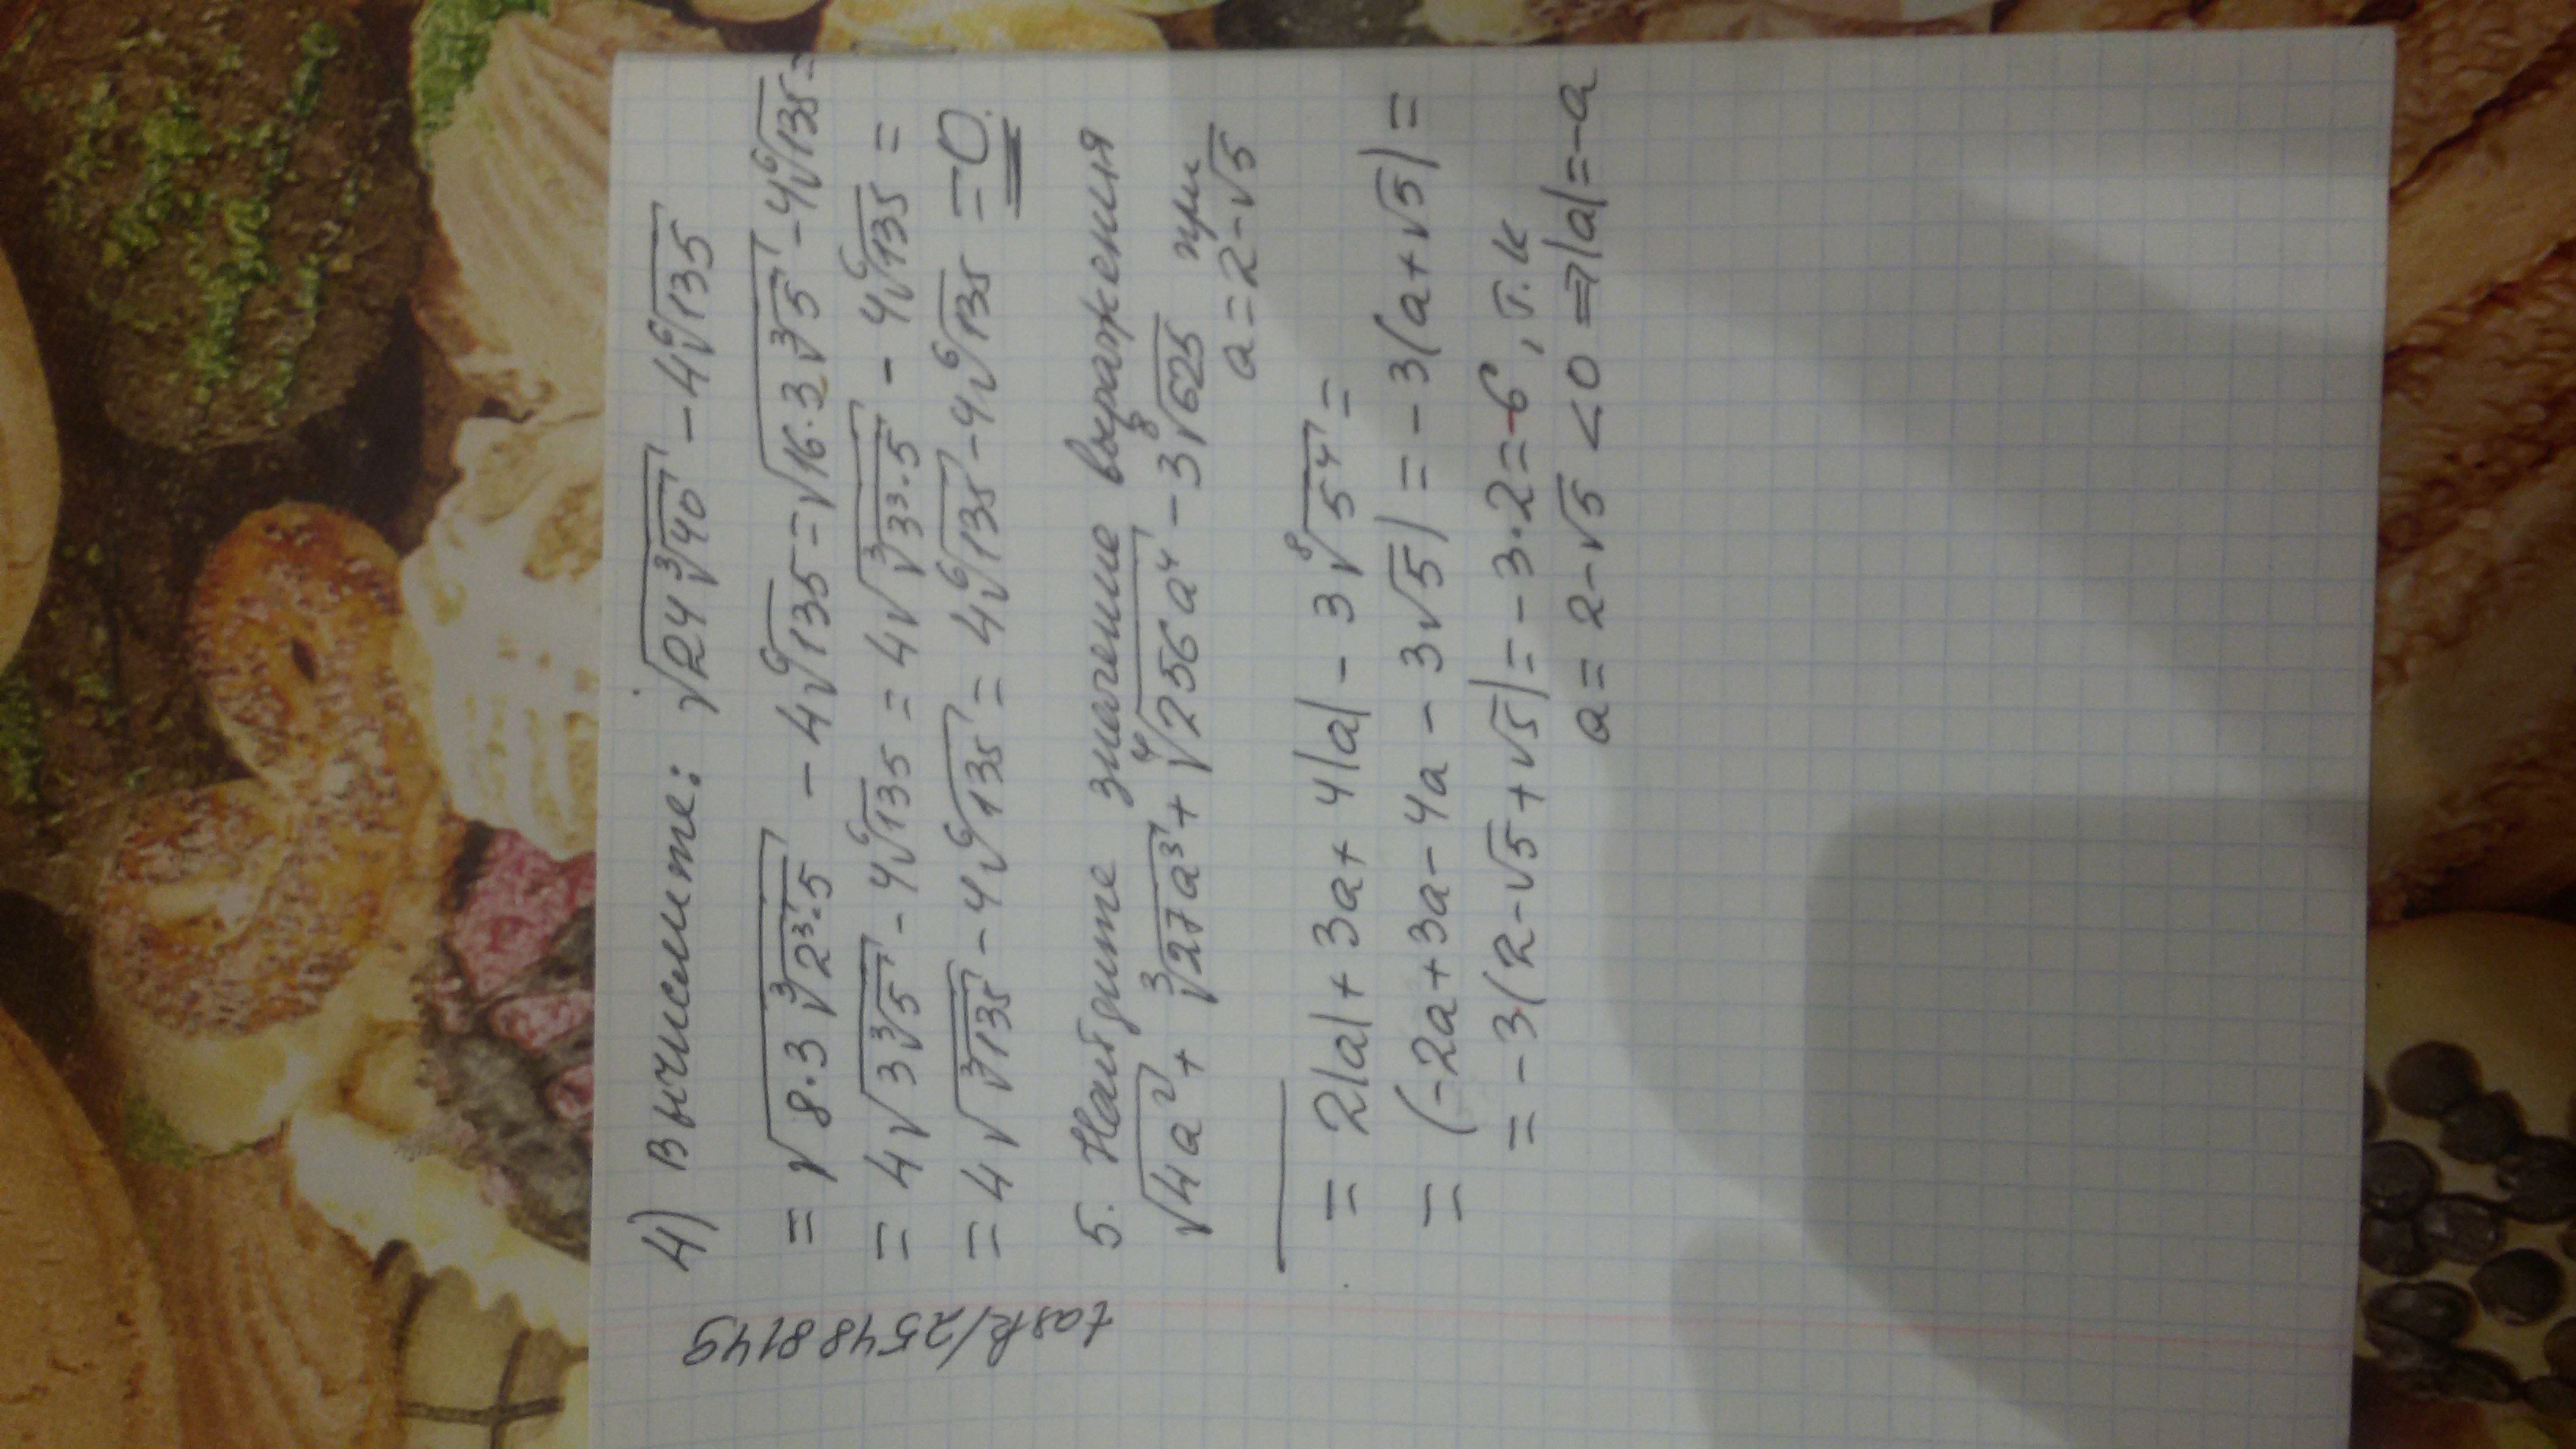 4) Вычислите: √(24∛40) - 4⁶√135
= √(8·3∛(2³·5)) - 4⁶√135 = √(16·3∛5) - 4⁶√135 =
= 4√(3∛5) - 4⁶√135 = 4√(∛(3³·5)) - 4⁶√135 =
= 4√(∛135) - 4⁶√135 = 4⁶√135 - 4⁶√135 = 0.
5. Найдите значение выражения
√(4a²) + ∛(27a³) + ⁴√(256a⁴) - 3⁸√625 при
a = 2-√5
= 2|a| + 3a + 4|a| - 3⁸√(5⁴) =
= (-2a + 3a - 4a - 3√5) = -3(a+√5) =
= -3(2-√5+√5) = -3·2 = -6, т.к
a = 2-√5 < 0 ⇒ |a| = -a
task/25488149